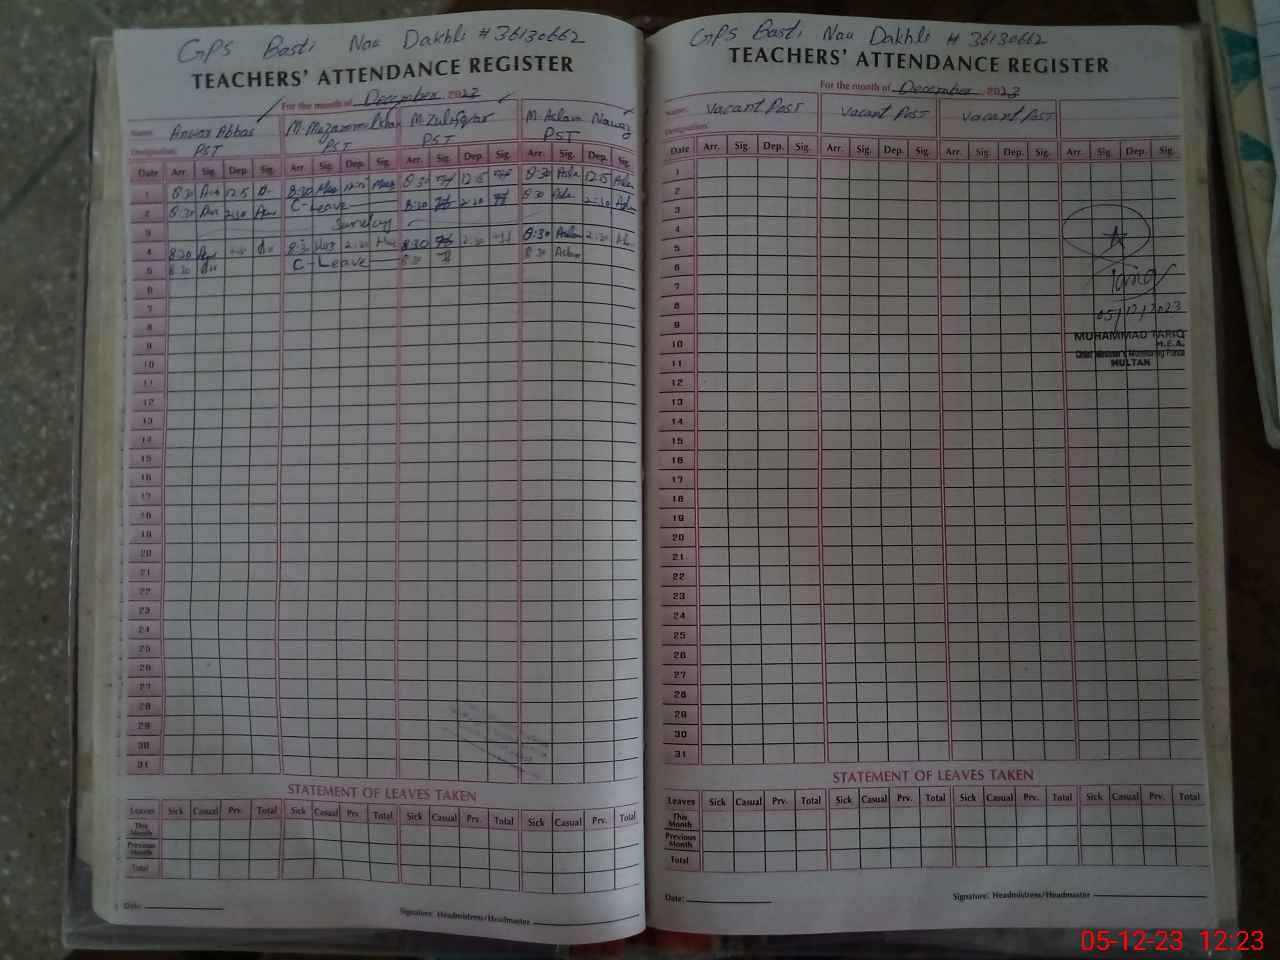 GPS Basti Nau Dakhli # 36130662
TEACHERS' ATTENDANCE REGISTER
For the month of December 2023
Name: Anwar Abbas M. Muzammil Khan M. Zulifqrar M. Aslam Nawaz
Designation: PST PST PST PST
Date Arr. Sig. Dep. Sig. Arr. Sig. Dep. Sig. Arr. Sig. Dep. Sig. Arr. Sig. Dep. Sig.
1 8:30 12:15 8:30 12:15 8:30 12:15 8:30 Aslam 12:15 Aslam
2 8:30 2:30 C-Leave 8:30 2:30 8:30 Aslam 2:30
3 Sunday
4 8:30 8:30 2:30 8:30 2:30 8:30 Aslam 2:30
5 8:30 C-Leave 8:30 8:30 Aslam
6
7
8
9
10
11
12
13
14
15
16
17
18
19
20
21
22
23
24
25
26
27
28
29
30
31
STATEMENT OF LEAVES TAKEN
Leaves Sick Casual Prv. Total Sick Casual Prv. Total Sick Casual Prv. Total Sick Casual Prv. Total
This Month
Previous Month
Total
Date:
Signature: Headmistress/Headmaster
GPS Basti Nau Dakhli # 36130662
TEACHERS' ATTENDANCE REGISTER
For the month of December 2023
Name: Vacant Post Vacant Post Vacant Post
Designation:
Date Arr. Sig. Dep. Sig. Arr. Sig. Dep. Sig. Arr. Sig. Dep. Sig. Arr. Sig. Dep. Sig.
1
2
3
4
5
6
7
8
9
10
11
12
13
14
15
16
17
18
19
20
21
22
23
24
25
26
27
28
29
30
31
Tariq
05/12/2023
MUHAMMAD TARIQ
M.E.A.
Chief Minister's Monitoring Force
MULTAN
STATEMENT OF LEAVES TAKEN
Leaves Sick Casual Prv. Total Sick Casual Prv. Total Sick Casual Prv. Total Sick Casual Prv. Total
This Month
Previous Month
Total
Date:
Signature: Headmistress/Headmaster
05-12-23 12:23